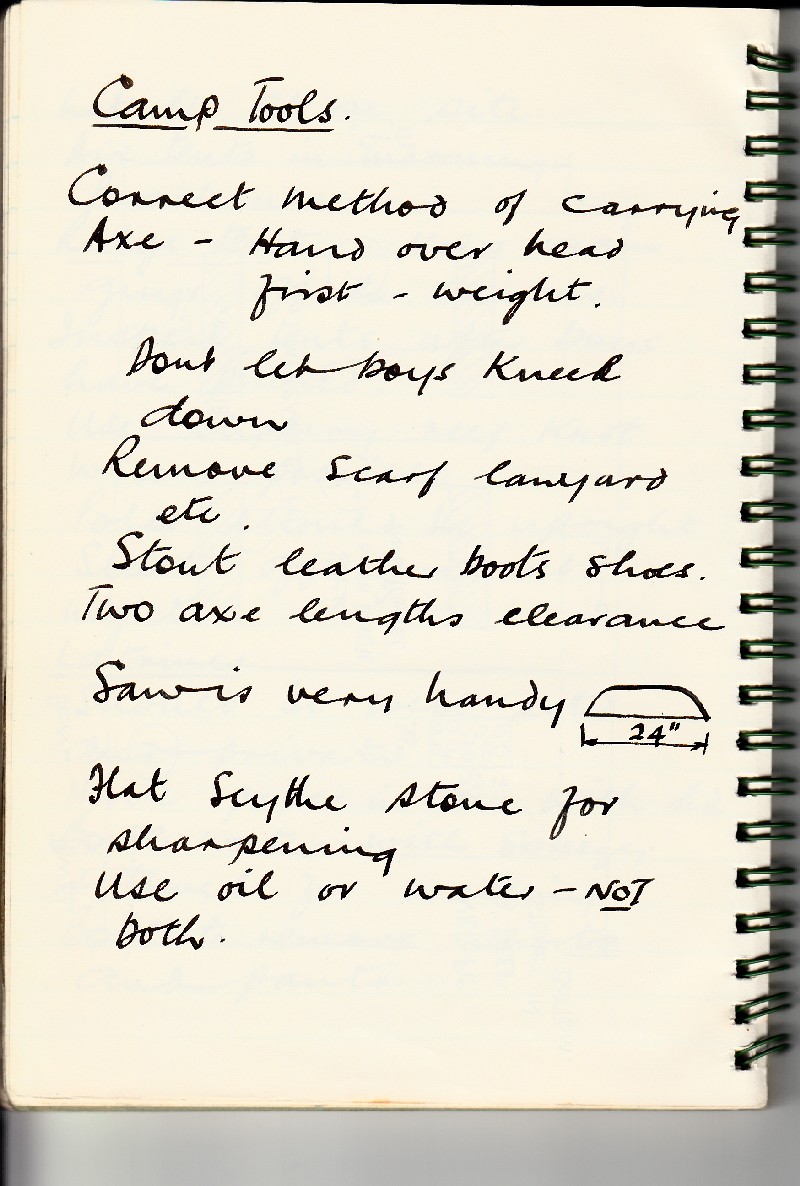 Camp Tools.
Correct method of carrying
Axe - Hand over head
first - weight.
Dont let boys Kneel
down
Remove scarf lanyard
etc.
Stout leather boots shoes.
Two axe lengths clearance
Saw is very handy
24"
Flat Scythe stone for
sharpening
Use oil or water - NOT
both.